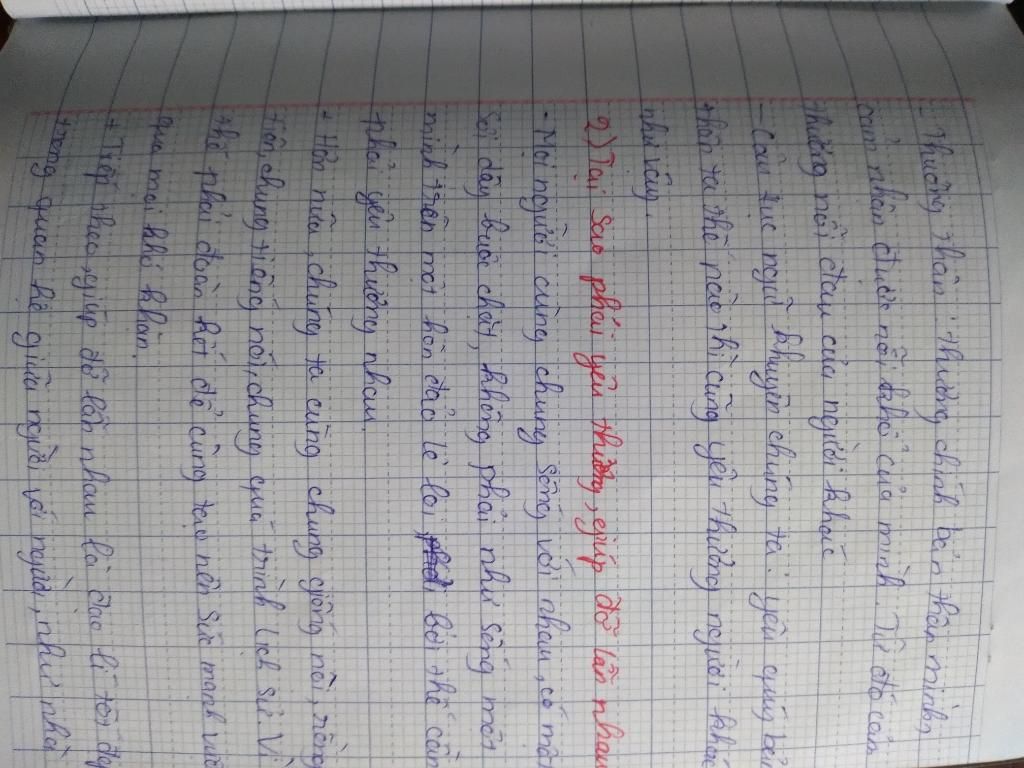 - Thương thân: thương chính bản thân mình,
cảm nhận được nỗi khổ của mình. Từ đó cảm
thương nỗi đau của người khác
- Câu tục ngữ khuyên chúng ta: yêu quý bản
thân ta thế nào thì cũng yêu thương người khác
như vậy.
2) Tại sao phải yêu thương, giúp đỡ lẫn nhau
- Mọi người cùng chung sống với nhau, có mối
sợi dây buộc chặt, không phải như sống một
mình trên một hòn đảo lẻ loi, bởi thế cần
phải yêu thương nhau.
+ Hơn nữa, chúng ta cùng chung giống nòi, rồng
tiên, chung tiếng nói, chung quá trình lịch sử. Vì
thế phải đoàn kết để cùng tạo nên sức mạnh vượt
qua mọi khó khăn.
+ Tiếp theo, giúp đỡ lẫn nhau là đạo lí tốt đẹp
trong quan hệ giữa người với người, như nhà